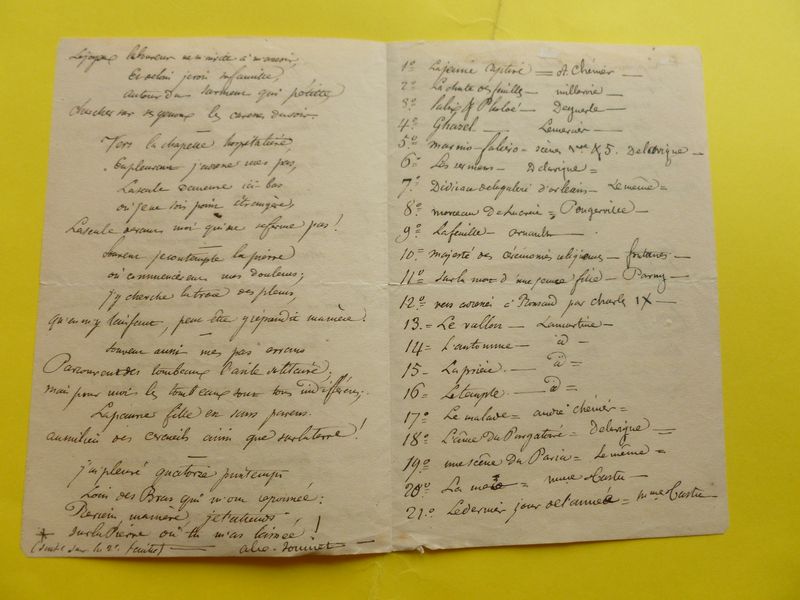 laboureur ne m'invite à m'asseoir,
autour du sarment qui pétille
chercher sur ses genoux les caresses du soir
Vers la chapelle hospitalière,
En pleurant j'adresse mes pas,
La seule demeure ici bas
où je ne sois point étrangère,
La seule devant moi qui ne se ferme pas!
Souvent je contemple la pierre
où commencèrent mes douleurs;
j'y cherche la trace des pleurs,
qu'en m'y laissant, peut être y répandit ma mère!
Souvent aussi mes pas errans
Parcourent des tombeaux l'asile solitaire;
mais pour moi les tombeaux sont tous indifférens;
La pauvre fille est sans parens
au milieu des cercueils ainsi que sur la terre!
j'ai pleuré quatorze printemps
Loin des Bras qui m'ont repoussée:
Reviens ma mère, je t'attends
sur la Pierre où tu m'as laissée!
(suite sur la 2e feuille) — alex. soumet —
1o La jeune captive = A. Chénier —
2o La chute des feuilles — millevoie —
3o & Phaloé — Deguerle —
4o Ghazel — Lemercier —
5o marino faliero — scènes & 5. Delavigne —
6o — Delavigne =
7o d'orléans — Le même =
8o morceau de Lucrèce = Pongerville —
9o La feuille — arnault —
10. = majesté des cérémonies religieuses — fontanes —
11o sur la mort d'une jeune fille — Parny —
12o vers adressés à Ronsard par charles IX —
13. = Le vallon — Lamartine —
14 = L'automne — id —
15 — La prière — id =
16 = Le temple — id =
17o Le malade = andré chénier =
18o L'âme du Purgatoire = Delavigne =
19o une scène du Paria = Le même =
20o La = mme Tastu —
21.o Le dernier jour de l'année = mme Tastu —